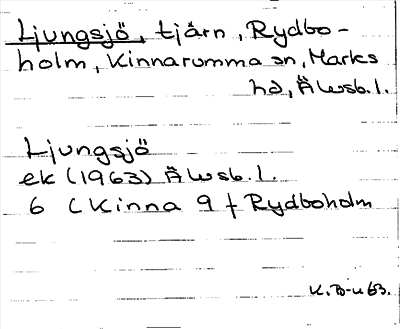 Ljungsjö, tjärn, Rydbo-
holm, Kinnarumma sn, Marks
hd, Älvsb. l.
Ljungsjö
ek (1963) Älvsb. l.
6 C Kinna 9 f Rydboholm
K. B-u 63.